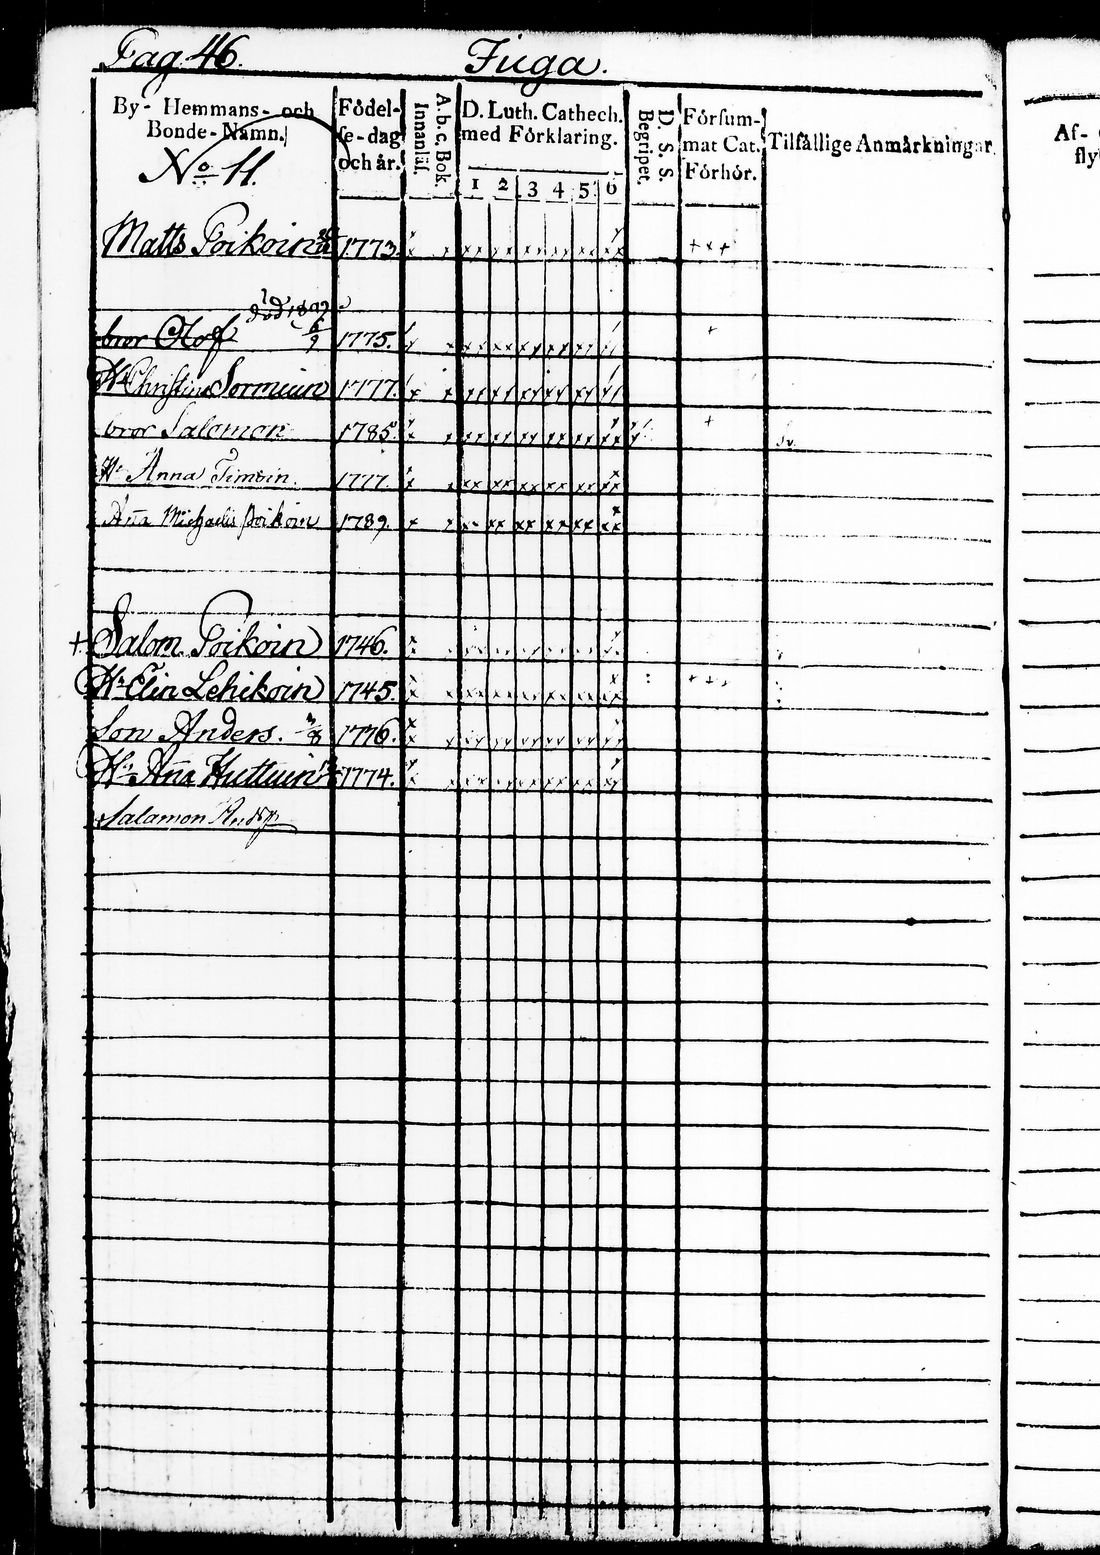 Pag. 46. Juga.
By- Hemmans- och Bonde-Namn.
Födel-se-dag och år.
Innanläs.
A.b.c. Bok.
D. Luth. Cathech. med Förklaring.
1 2 3 4 5 6
D. S. S. Begripet.
Försum-mat Cat. Förhör.
Tilfällige Anmärkningar
Af-
fly
No 11.
Matts Poikoin 1773.
död
bror Olof 6/9 1775.
H. Christina Sormuin 1777.
bror Salomon 1785
H. Anna Timoin. 1777.
Aña Michaelis Poikoin 1789.
+ Salom. Poikoin 1746.
H. Elin Lehikoin 1745.
Son Anders. 1776.
H. Aña Huttuin 1774.
Salamon